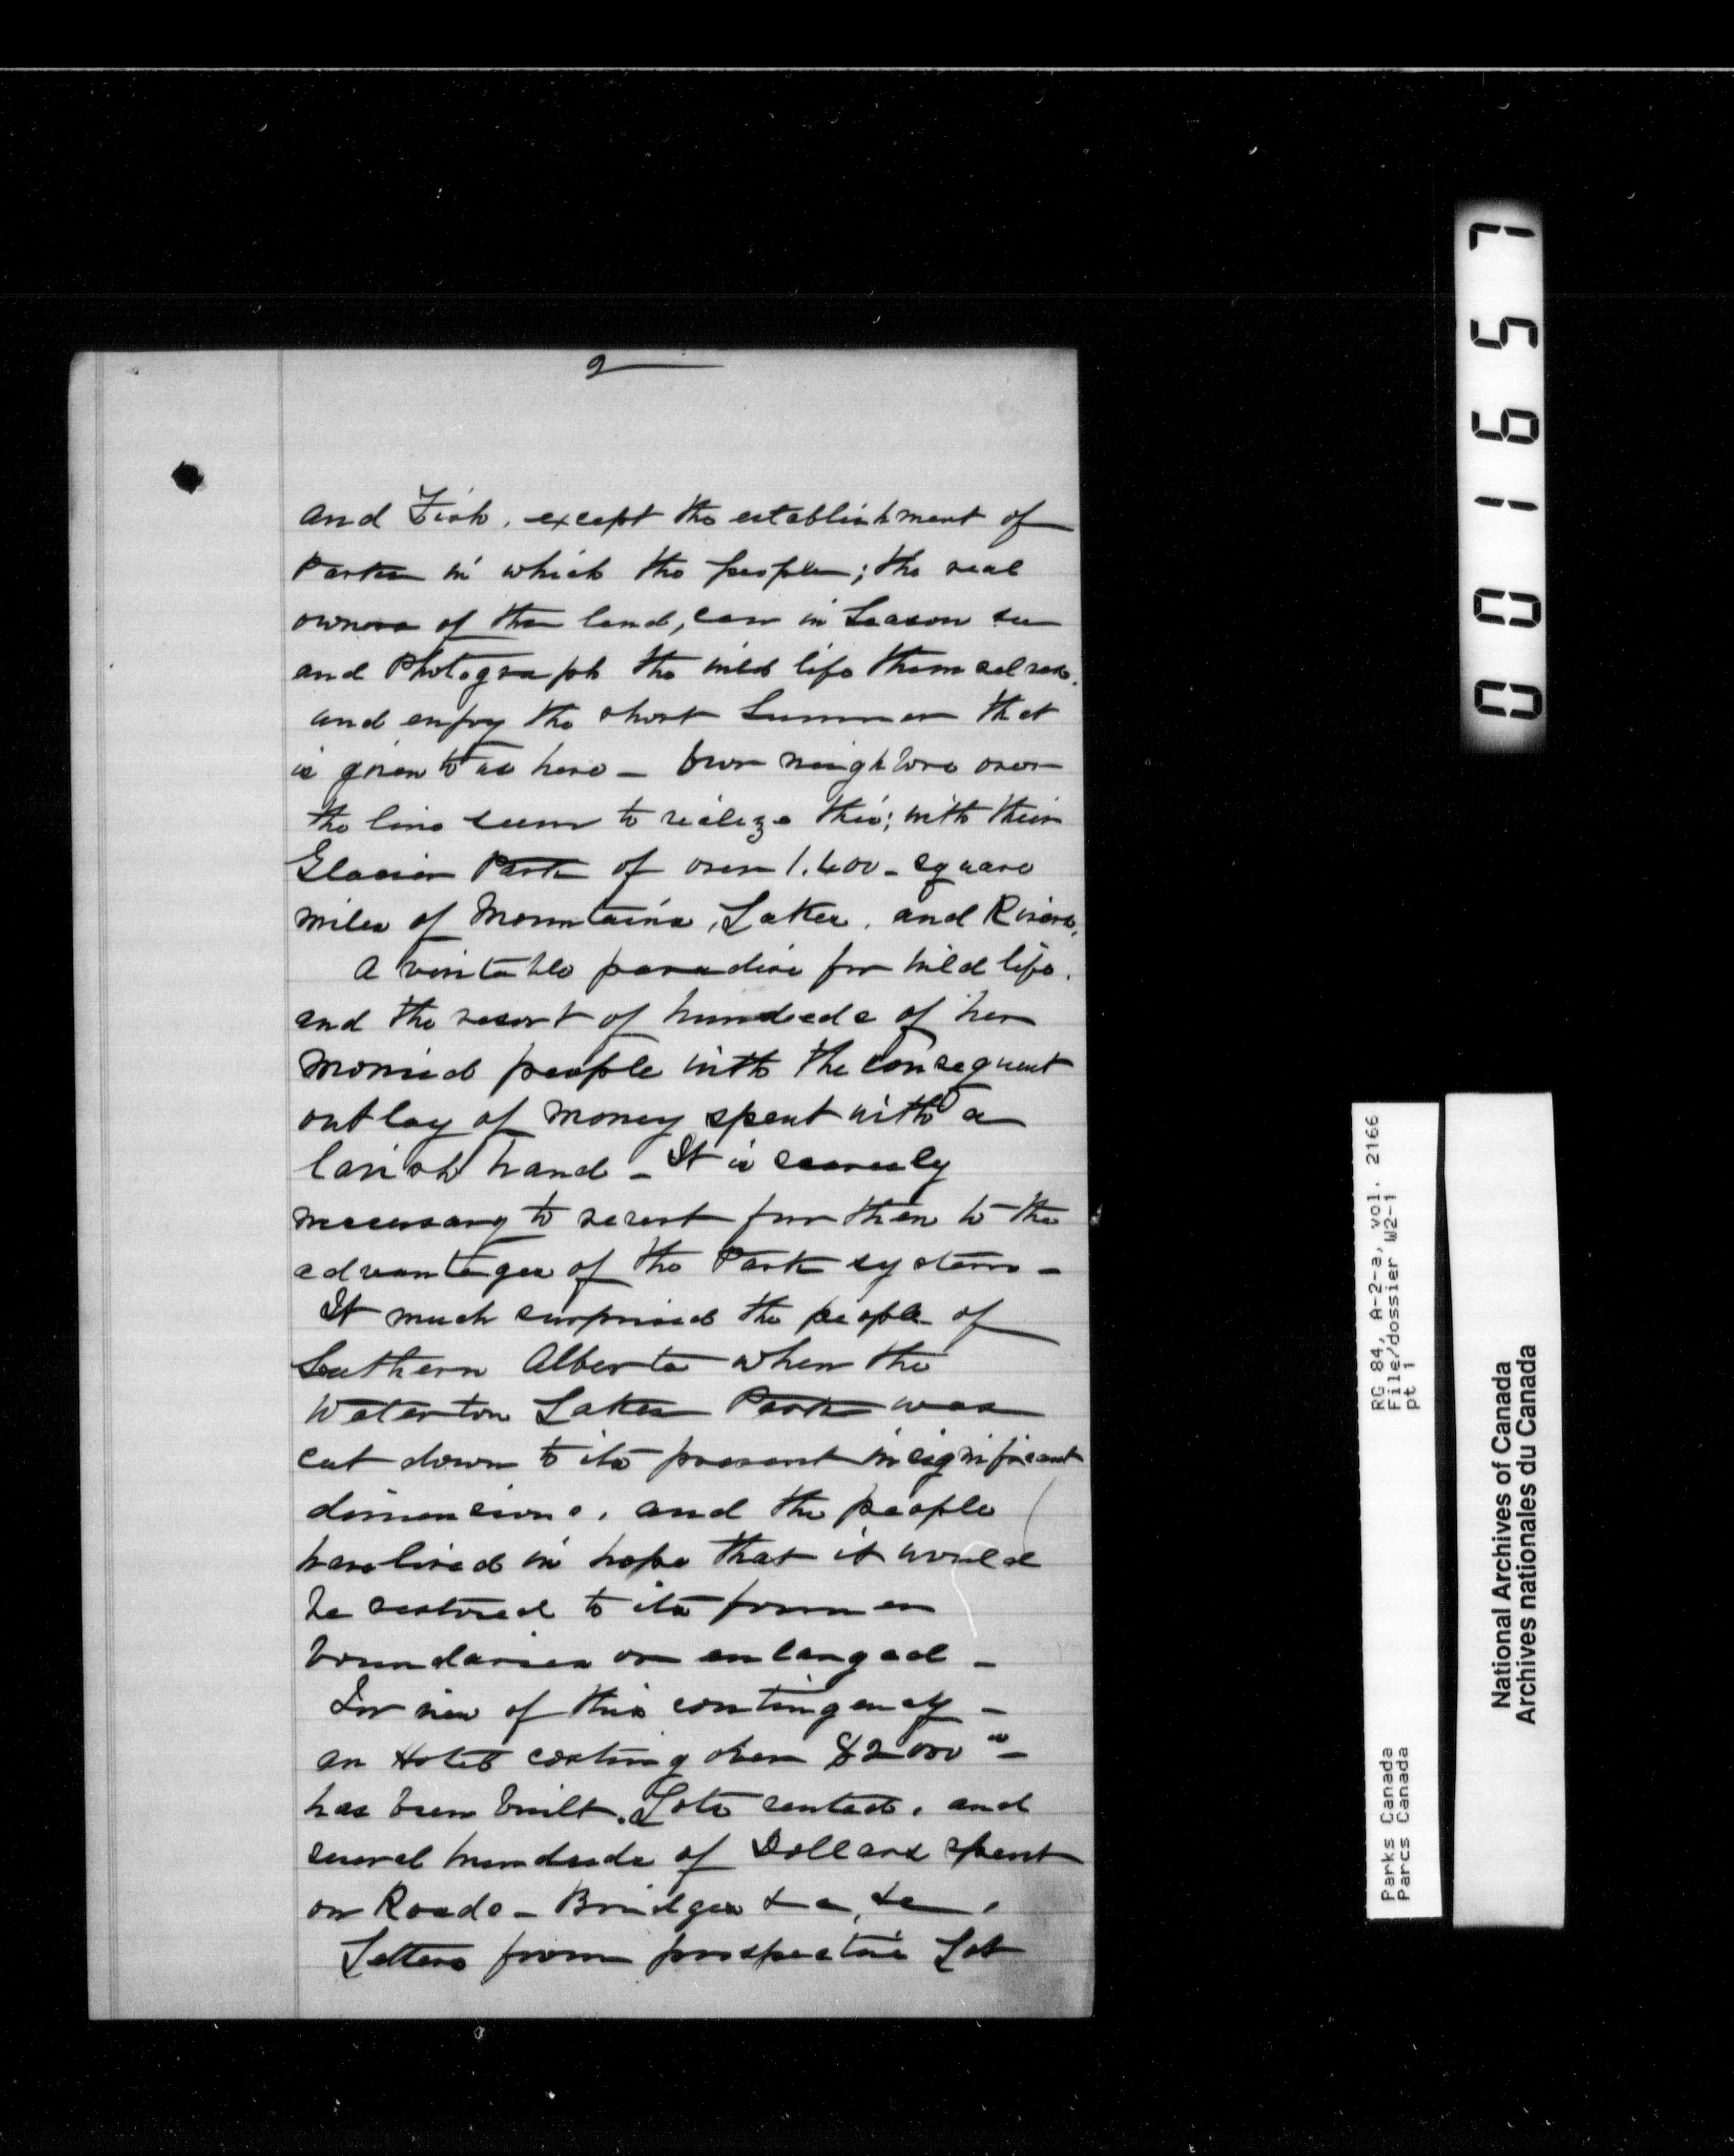 2
and Fish, except the establishment of
Parks in which the people; the real
owners of the land, can in Season see
and Photograph the wild life themselves.
and enjoy the short Summer that
is given to us here - Our neighbors over
the line seem to realize this; with their
Glacier Park of over 1.400 - square
miles of Mountains, Lakes, and Rivers,
A veritable paradise for wild life.
and the resort of hundreds of her
monied people with the consequent
outlay of money spent with a
lavish hand - It is scarcely
necessary to revert further to the
advantages of the Park system -
It much surprised the people of
Southern Alberta when the
Waterton Lakes Park was
cut down to its present insignificant
dimensions, and the people
have lived in hope that it would
be restored to its former
boundaries or enlarged -
In view of this contingency -
an Hotel costing over $2000 00 -
has been built. Lots rented, and
several hundreds of Dollars spent
on Roads - Bridges &c, &c,
Letters from prospective Lot
001657
RG 84, A-2-a, vol. 2166
File/dossier W2-1
pt 1
Parks Canada
Parcs Canada
National Archives of Canada
Archives nationales du Canada